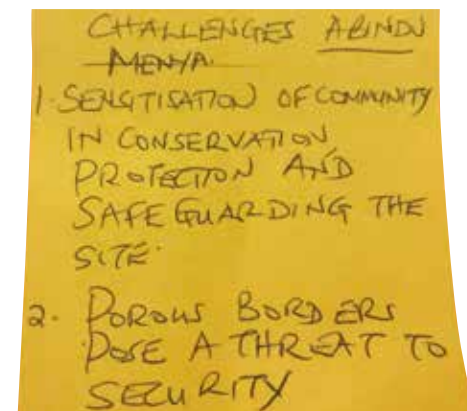 CHALLENGES ABINDU
MENYA.
1. SENSTISATION OF COMMUNITY
IN CONSERVATION
PROTECTION AND
SAFE GUARDING THE
SITE.
2. POROUS BORDERS
POSE A THREAT TO
SECURITY